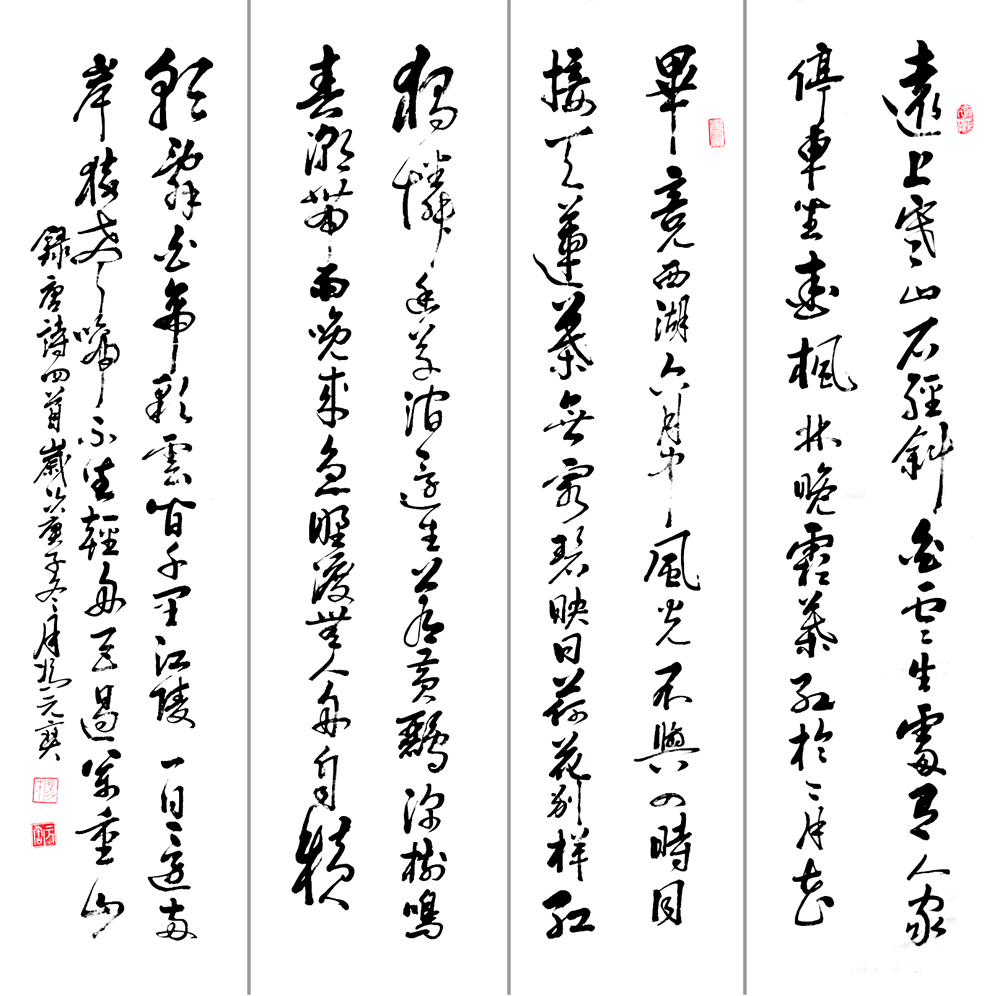 遠上寒山石徑斜白雲生處有人家
停車坐愛楓林晚霜葉紅於二月花
畢竟西湖六月中風光不與四時同
接天蓮葉無窮碧映日荷花別樣紅
獨憐幽草澗邊生上有黃鸝深樹鳴
春潮帶雨晚來急野渡無人舟自橫
朝辭白帝彩雲間千里江陵一日還兩
岸猿聲啼不住輕舟已過萬重山
錄唐詩四首歲次庚子冬月